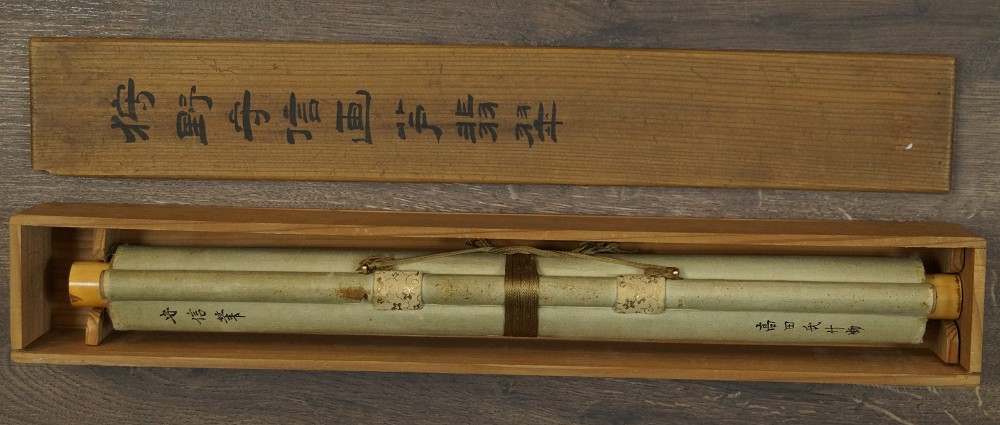 狩野守信画芦翡翠
守信筆
高田氏什物